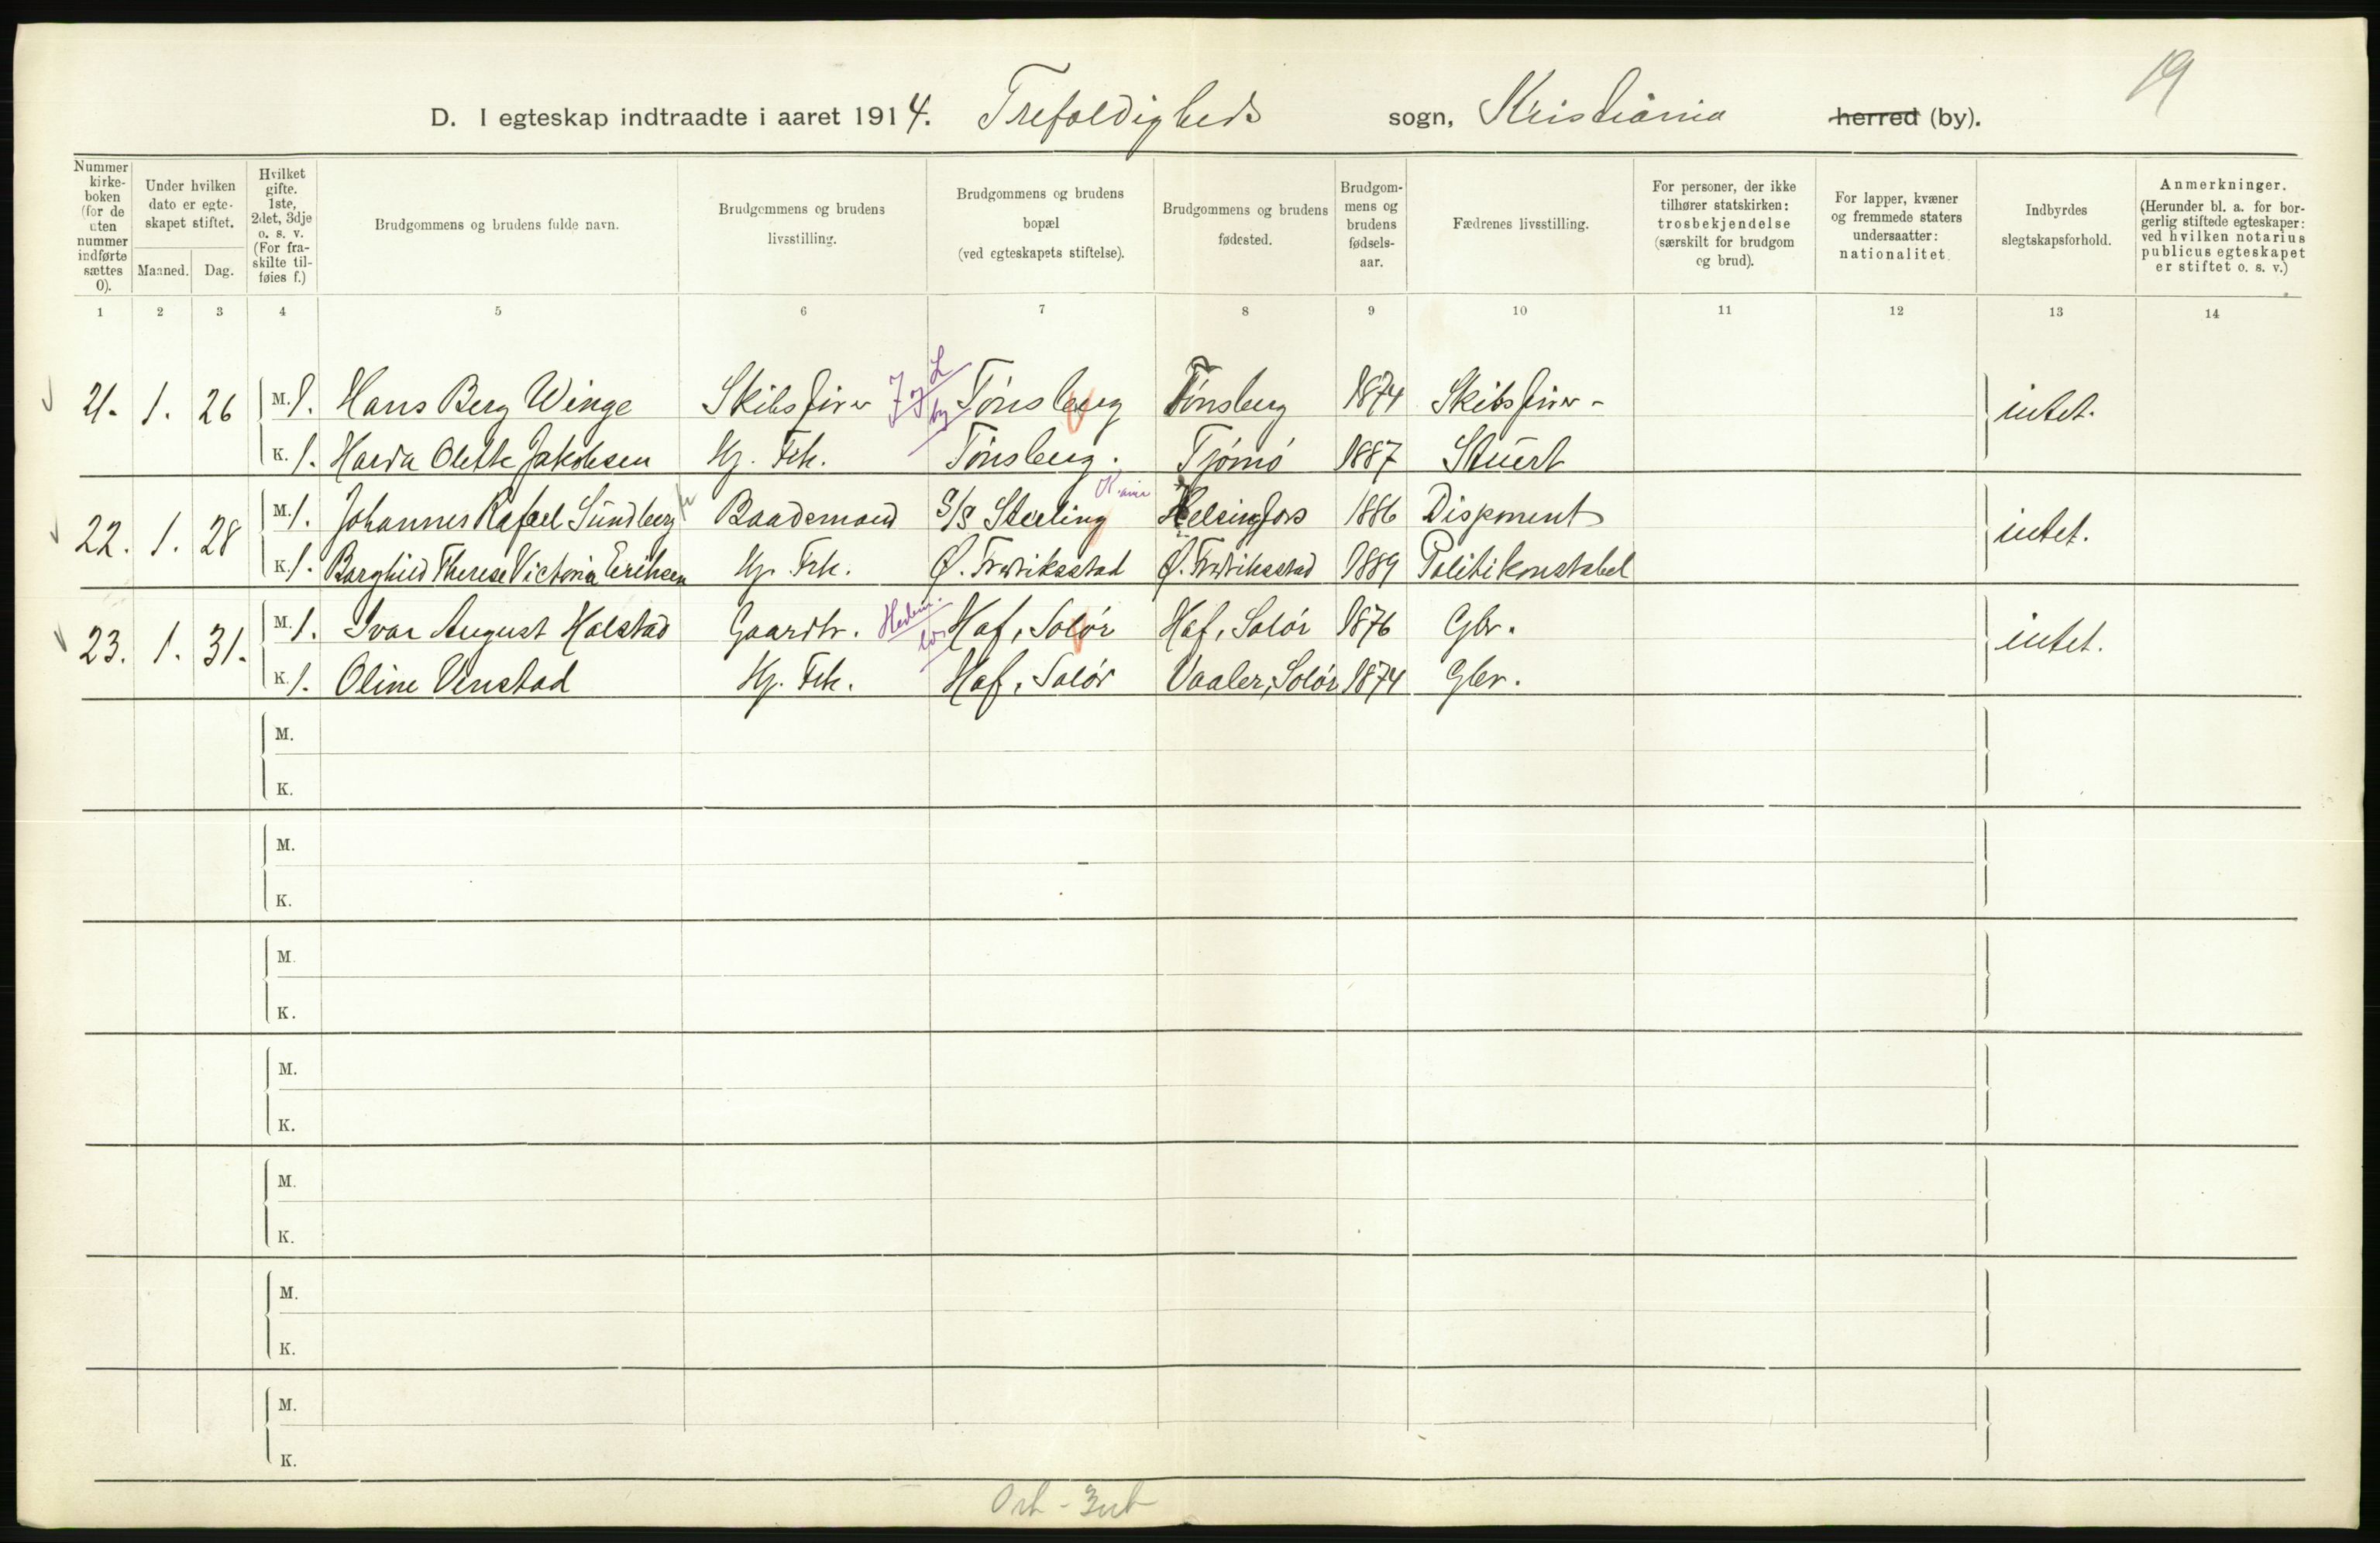 19
D. I egteskap indtraadte i aaret 1914. Trefoldigheds sogn, Kristiania herred (by).
Nummer kirke-boken (for de uten nummer indførte sættes 0).
Under hvilken dato er egte-skapet stiftet.
Maaned. Dag.
Hvilket gifte. 1ste, 2det, 3dje o. s. v. (For fra-skilte til-føies f.)
Brudgommens og brudens fulde navn.
Brudgommens og brudens livsstilling.
Brudgommens og brudens bopæl (ved egteskapets stiftelse).
Brudgommens og brudens fødested.
Brudgom-mens og brudens fødsels-aar.
Fædrenes livsstilling.
For personer, der ikke tilhører statskirken: trosbekjendelse (særskilt for brudgom og brud).
For lapper, kvæner og fremmede staters undersaatter: nationalitet.
Indbyrdes slegtskapsforhold.
Anmerkninger. (Herunder bl. a. for bor-gerlig stiftede egteskaper: ved hvilken notarius publicus egteskapet er stiftet o. s. v.)
1 2 3 4 5 6 7 8 9 10 11 12 13 14
21. 1. 26 M. 1. Hans Berg Winge Skibsfører J og L by Tønsberg Tønsberg 1874 Skibsfører - intet.
K. 1. Olette Jakobsen Hj. Frk. Tønsberg. Tjømø 1887 Stuert
22. 1. 28 M. 1. Johannes Rafael Sundberg Baadsmand S/S Sterling K.ania Helsingfors 1886 Disponent intet.
K. 1. Borghild Therese Victoria Eriksen Hj. Frk. Ø. Fredriksstad Ø. Fredriksstad 1889 Politikonstabel
23. 1. 31. M. 1. Ivar August Halstad Gaardbr. Hedm. Hof, Solør Hof, Solør 1876 Gbr. intet.
K. 1. Oline Venstad Hj. Frk. Hof, Solør Vaaler, Solør 1874 Gbr.
M.
K.
M.
K.
M.
K.
M.
K.
M.
K.
M.
K.
M.
K.